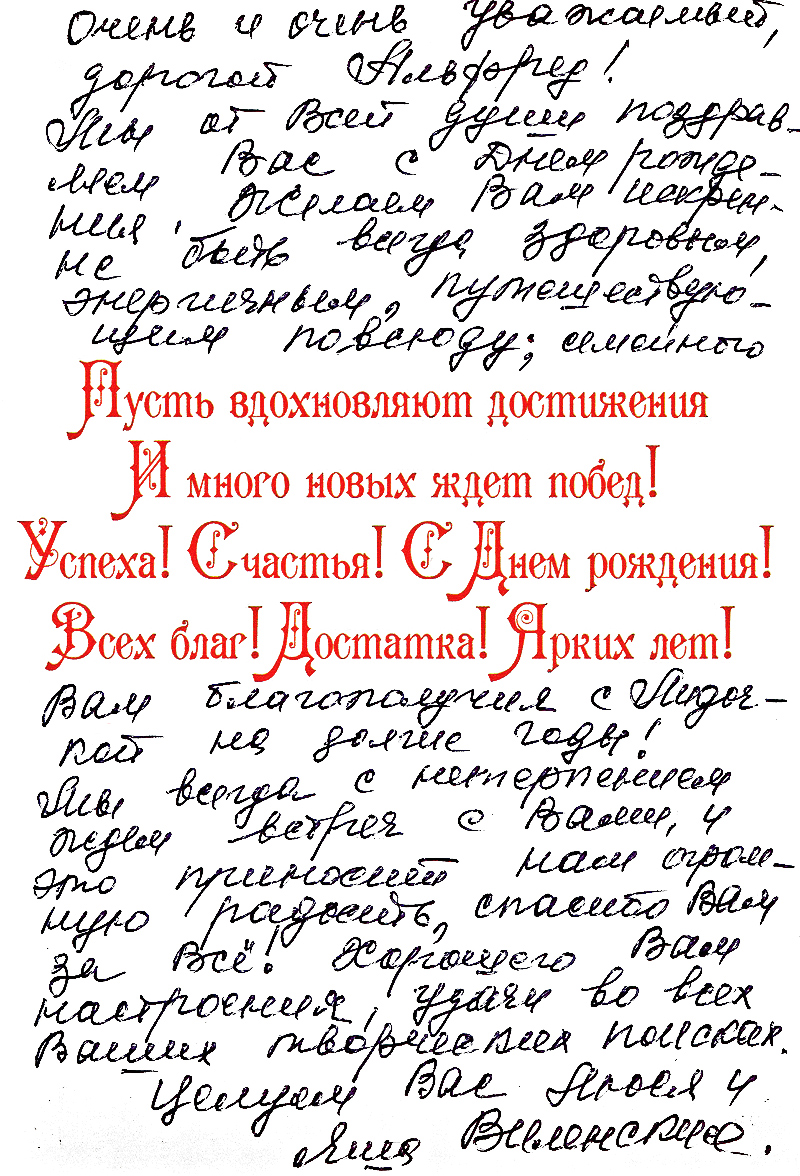 Очень и очень уважаемый,
дорогой Альфред!
Мы от Всей души поздрав-
ляем Вас с Днём рожде-
ния, желаем Вам искрен-
не быть всегда здоровым,
энергичным, путешествую-
щим повсюду; семейного
Пусть вдохновляют достижения
И много новых ждет побед!
Успеха! Счастья! С Днем рождения!
Всех благ! Достатка! Ярких лет!
Вам благополучия с Лидоч-
кой на долгие годы!
Мы всегда с нетерпением
ждём встреч с Вами, и
это приносит нам огром-
ную радость, спасибо Вам
за Всё! Хорошего Вам
настроения, удачи во всех
Ваших творческих поисках.
Целуем Вас и
Яша Виленские.